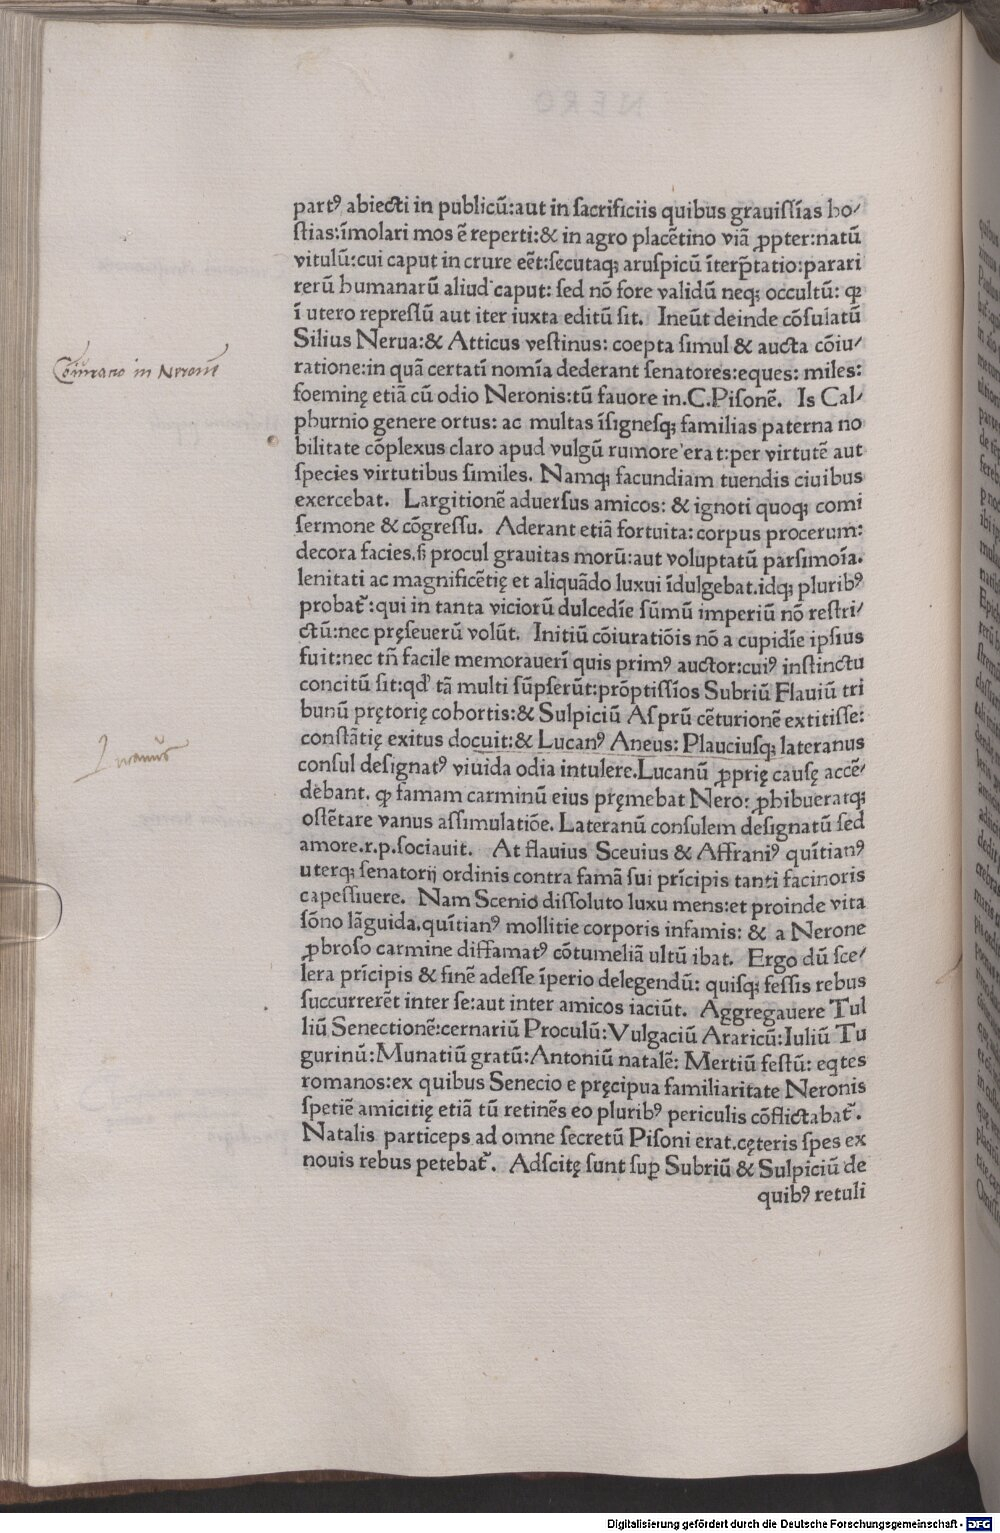 partꝰ abiecti in publicū:aut in sacrificiis quibus grauissīas ho/
stias:īmolari mos ē reperti:& in agro placētino viā ꝓpter:natū
vitulū:cui caput in crure eēt:secutaqꝫ aruspicū īterp̄tatio:parari
rerū humanarū aliud caput: sed nō fore validū neqꝫ occultū: ꝙ
ī utero repressū aut iter iuxta editū sit. Ineūt deinde cōsulatū
Silius Nerua:& Atticus vestinus: coepta simul & aucta cōiu/
ratione:in quā certatī nomīa dederant senatores:eques: miles:
foeminę etiā cū odio Neronis:tū fauore in.C.Pisonē. Is Cal/
phurnio genere ortus: ac multas īsignesqꝫ familias paterna no
bilitate cōplexus claro apud vulgū rumore erat:per virtutē aut
species virtutibus similes. Namqꝫ facundiam tuendis ciuibus
exercebat. Largitionē aduersus amicos: & ignoti quoqꝫ comi
sermone & cōgressu. Aderant etiā fortuita: corpus procerum:
decora facies.s; procul grauitas morū:aut voluptatū parsimoīa.
lenitati ac magnificētię et aliquādo luxui īdulgebat.idqꝫ pluribꝰ
probat᷑:qui in tanta viciorū dulcedīe sūmū imperiū nō restri/
ctū:nec pręseuerū volūt. Initiū cōiuratiōis nō a cupidīe ipsius
fuit:nec tn̄ facile memorauerī quis primꝰ auctor:cuiꝰ instinctu
concitū sit:qd̓ tā multi sūpserūt:prōptissīos Subriū Flauiū tri
bunū prętorię cohortis:& Sulpiciū Asprū cēturionē extitisse:
constātię exitus docuit:& Lucanꝰ Aneus: Plauciusqꝫ lateranus
consul designatꝰ viuida odia intulere.Lucanū ꝓprię causę accē/
debant. ꝙ famam carminū eius pręmebat Nero: ꝓhibueratqꝫ
ostētare vanus assimulatiōe. Lateranū consulem designatū sed
amore.r.p.sociauit. At flauius Sceuius & Affraniꝰ quītianꝰ
uterqꝫ senatorij ordinis contra famā sui prīcipis tanti facinoris
capessiuere. Nam Scenio dissoluto luxu mens:et proinde vita
sōno lāguida.quītianꝰ mollitie corporis infamis: & a Nerone
ꝓbroso carmine diffamatꝰ cōtumeliā ultū ibat. Ergo dū sce/
lera prīcipis & finē adesse īperio delegendū: quisqꝫ fessis rebus
succurrerēt inter se:aut inter amicos iaciūt. Aggregauere Tul
liū Senectionē:cernariū Proculū:Vulgaciū Araricū:Iuliū Tu
gurinū:Munatiū gratū:Antoniū natalē: Mertiū festū: eqtes
romanos:ex quibus Senecio e pręcipua familiaritate Neronis
spetiē amicitię etiā tū retinēs eo pluribꝰ periculis cōflictabat᷑.
Natalis particeps ad omne secretū Pisoni erat.cęteris spes ex
nouis rebus petebat᷑. Adscitę sunt suꝑ Subriū & Sulpiciū de
quibꝰ retuli
Cōiuratio in Neronē
Lucanus
Digitalisierung gefördert durch die Deutsche Forschungsgemeinschaft - DFG